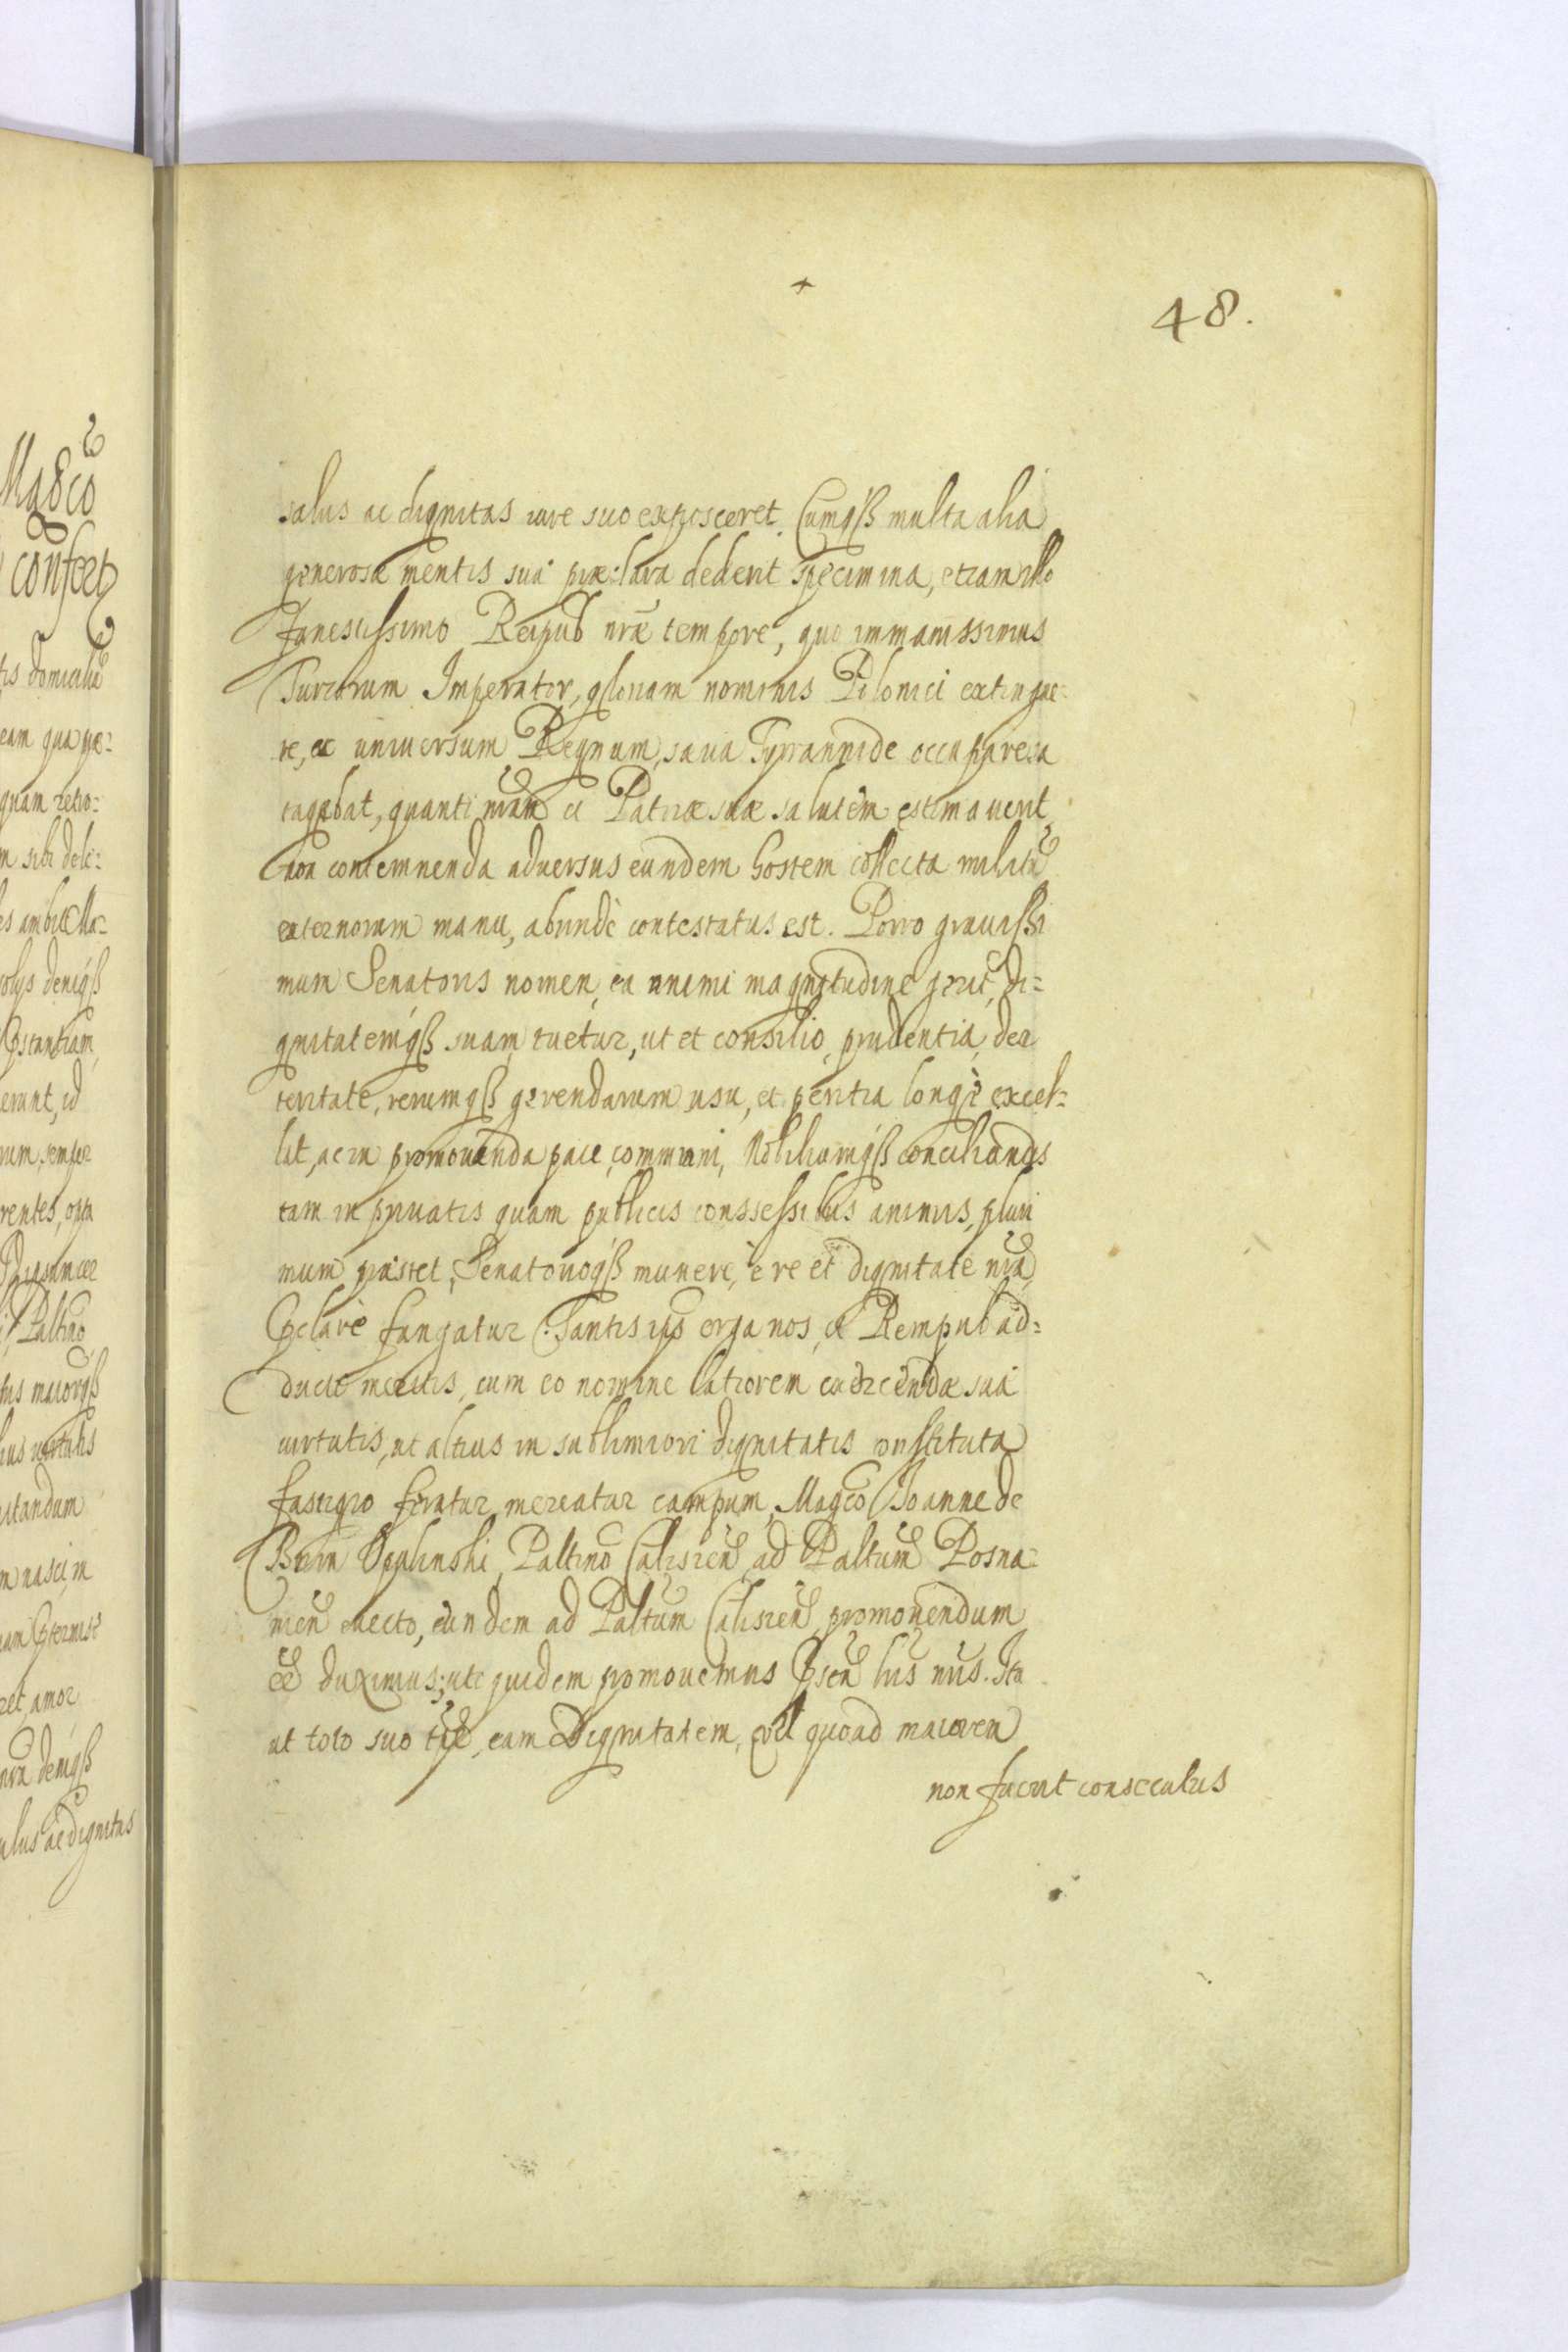 48.
salus ac dignitas iure suo exposceret. Cumqß multa alia
generosæ mentis suæ præclara dederit specimina, etiam illo
funestissimo Reipub nræ tempore, quo immanissimus
Turcarum Imperator, gloriam nominis Polonici extingue:
re, ac universum Regnum, sæua Tyrannide occupare sa
tagebat, quanti nram et Patriæ suæ salutem estimauerit
non contemnenda adversus eundem hostem collecta militũ
externorum manu, abundè contestatus est. Porro grauissi
mum Senatoris nomen, ea animi magnitudine gerit, di=
gnitatemqß suam tuetur, ut et consilio, prudentia, dex
teritate, rerumqß gerendarum usu, et peritia longè excel=
lat, ac in promouenda pace communi, Nobiliumqß conciliandis
tam in priuatis quam publicis conssessibus animis, pluri
mum præstet, Senatorioqß munere, è re et dignitate nra,
Pclarè fungatur. Tantis ijs erga nos, et Rempub ad=
ducti meritis, cum eo nomine latiorem exercendæ suæ
uirtutis, ut altius in sublimiori dignitatis constituta
fastigio feratur mereatur campum, Magco Joanne de
Bnin Opalinski, Paltino Calisien ad Paltum Posna=
nien euecto, eundem ad Paltum Calisien promouendum
ee duximus; uti quidem promouemus Psen lris nris. Ita
ut toto suo tpe, eam Dignitatem, uel quoad maiorem
non fuerit consecutus
Magco
confert
tis domiciliũ
quam retro:
m sibi dele:
olijs deniqß
erunt, id
rum semper
Paltino
m nasci, in
ret, amor
nra deniqß
alus ac dignitas